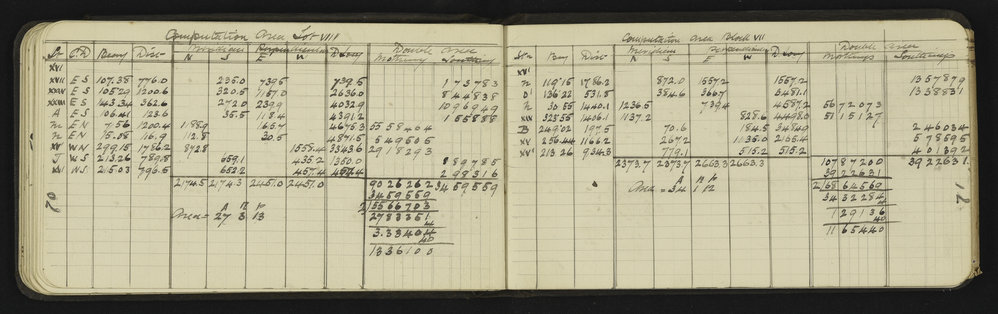 Computation Area Lot VIII
St C.D Bearg Dist Meridian Perpendicular D. Long Double Area
N S E W Northing Southing
XVI
XVII E S 107.38 776.0 235.0 739.5 739.5 173783
E S 105.29 1200.6 320.5 1157.0 2636.0 844838
E S 143.34 362.6 272.0 239.9 4032.9 1096949
A E S 106.41 123.6 35.5 118.4 4391.2 155888
E N 7.56 1200.4 1188.9 165.7 4675.3 5558404
E N 15.08 116.9 112.8 30.5 4871.5 549505
W N 299.15 1786.2 872.8 1558.4 3343.6 2918293
J W S 213.26 789.8 659.1 435.2 1350.0 889785
XVI W S 215.03 796.5 652.2 457.4 457.4 298316
2174.5 2174.3 2451.0 2451.0 9026262 3459559
3459559
A R P 2) 5566703
Area = 27 3 13 2783351
4
3.33404
40
1336100
70
Computation Area Block VII
Stn Bear Dist Meridian Perpendicular D. Long Double Area
N S E W Northings Southings
XVI
N 119°15 1786.2 872.0 1557.2 1557.2 1357879
O 136.22 531.8 384.6 366.7 3481.1 1338831
N 30.55 1440.1 1236.5 739.4 4587.2 5672073
XIX 323.55 1406.1 1137.2 828.6 4498.0 5115127
B 249.02 197.5 70.6 184.5 3484.9 246034
XV 256.44 1166.2 267.2 1135.0 2165.4 578595
XVI 213.26 934.3 779.1 515.2 515.2 401392
2373.7 2373.7 2663.3 2663.3 10787200 3922631
A R P 3922631
Area = 34 1 12 2) 6864569
3432284
4
129136
40
1165440
71